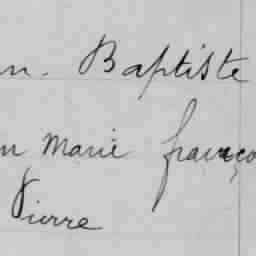 n. Baptiste
n Marie franço
Pierre